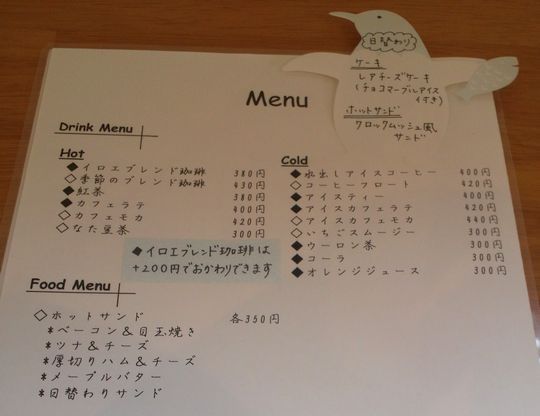 日替わり
ケーキ
レアチーズケーキ
(チョコマーブルアイス
付き)
ホットサンド
クロックムッシュ風
サンド
Menu
Drink Menu
Hot
◆イロエブレンド珈琲 380円
◇季節のブレンド珈琲 430円
◆紅茶 380円
◆カフェラテ 400円
◇カフェモカ 420円
◇なた豆茶 300円
Cold
◆水出しアイスコーヒー 400円
◇コーヒーフロート 420円
◆アイスティー 400円
◆アイスカフェラテ 420円
◇アイスカフェモカ 440円
◇いちごスムージー 300円
◆ウーロン茶 300円
◆コーラ 300円
◆オレンジジュース 300円
◆イロエブレンド珈琲は
+200円でおかわりできます
Food Menu
◇ホットサンド 各350円
*ベーコン&目玉焼き
*ツナ&チーズ
*厚切りハム&チーズ
*メープルバター
*日替わりサンド